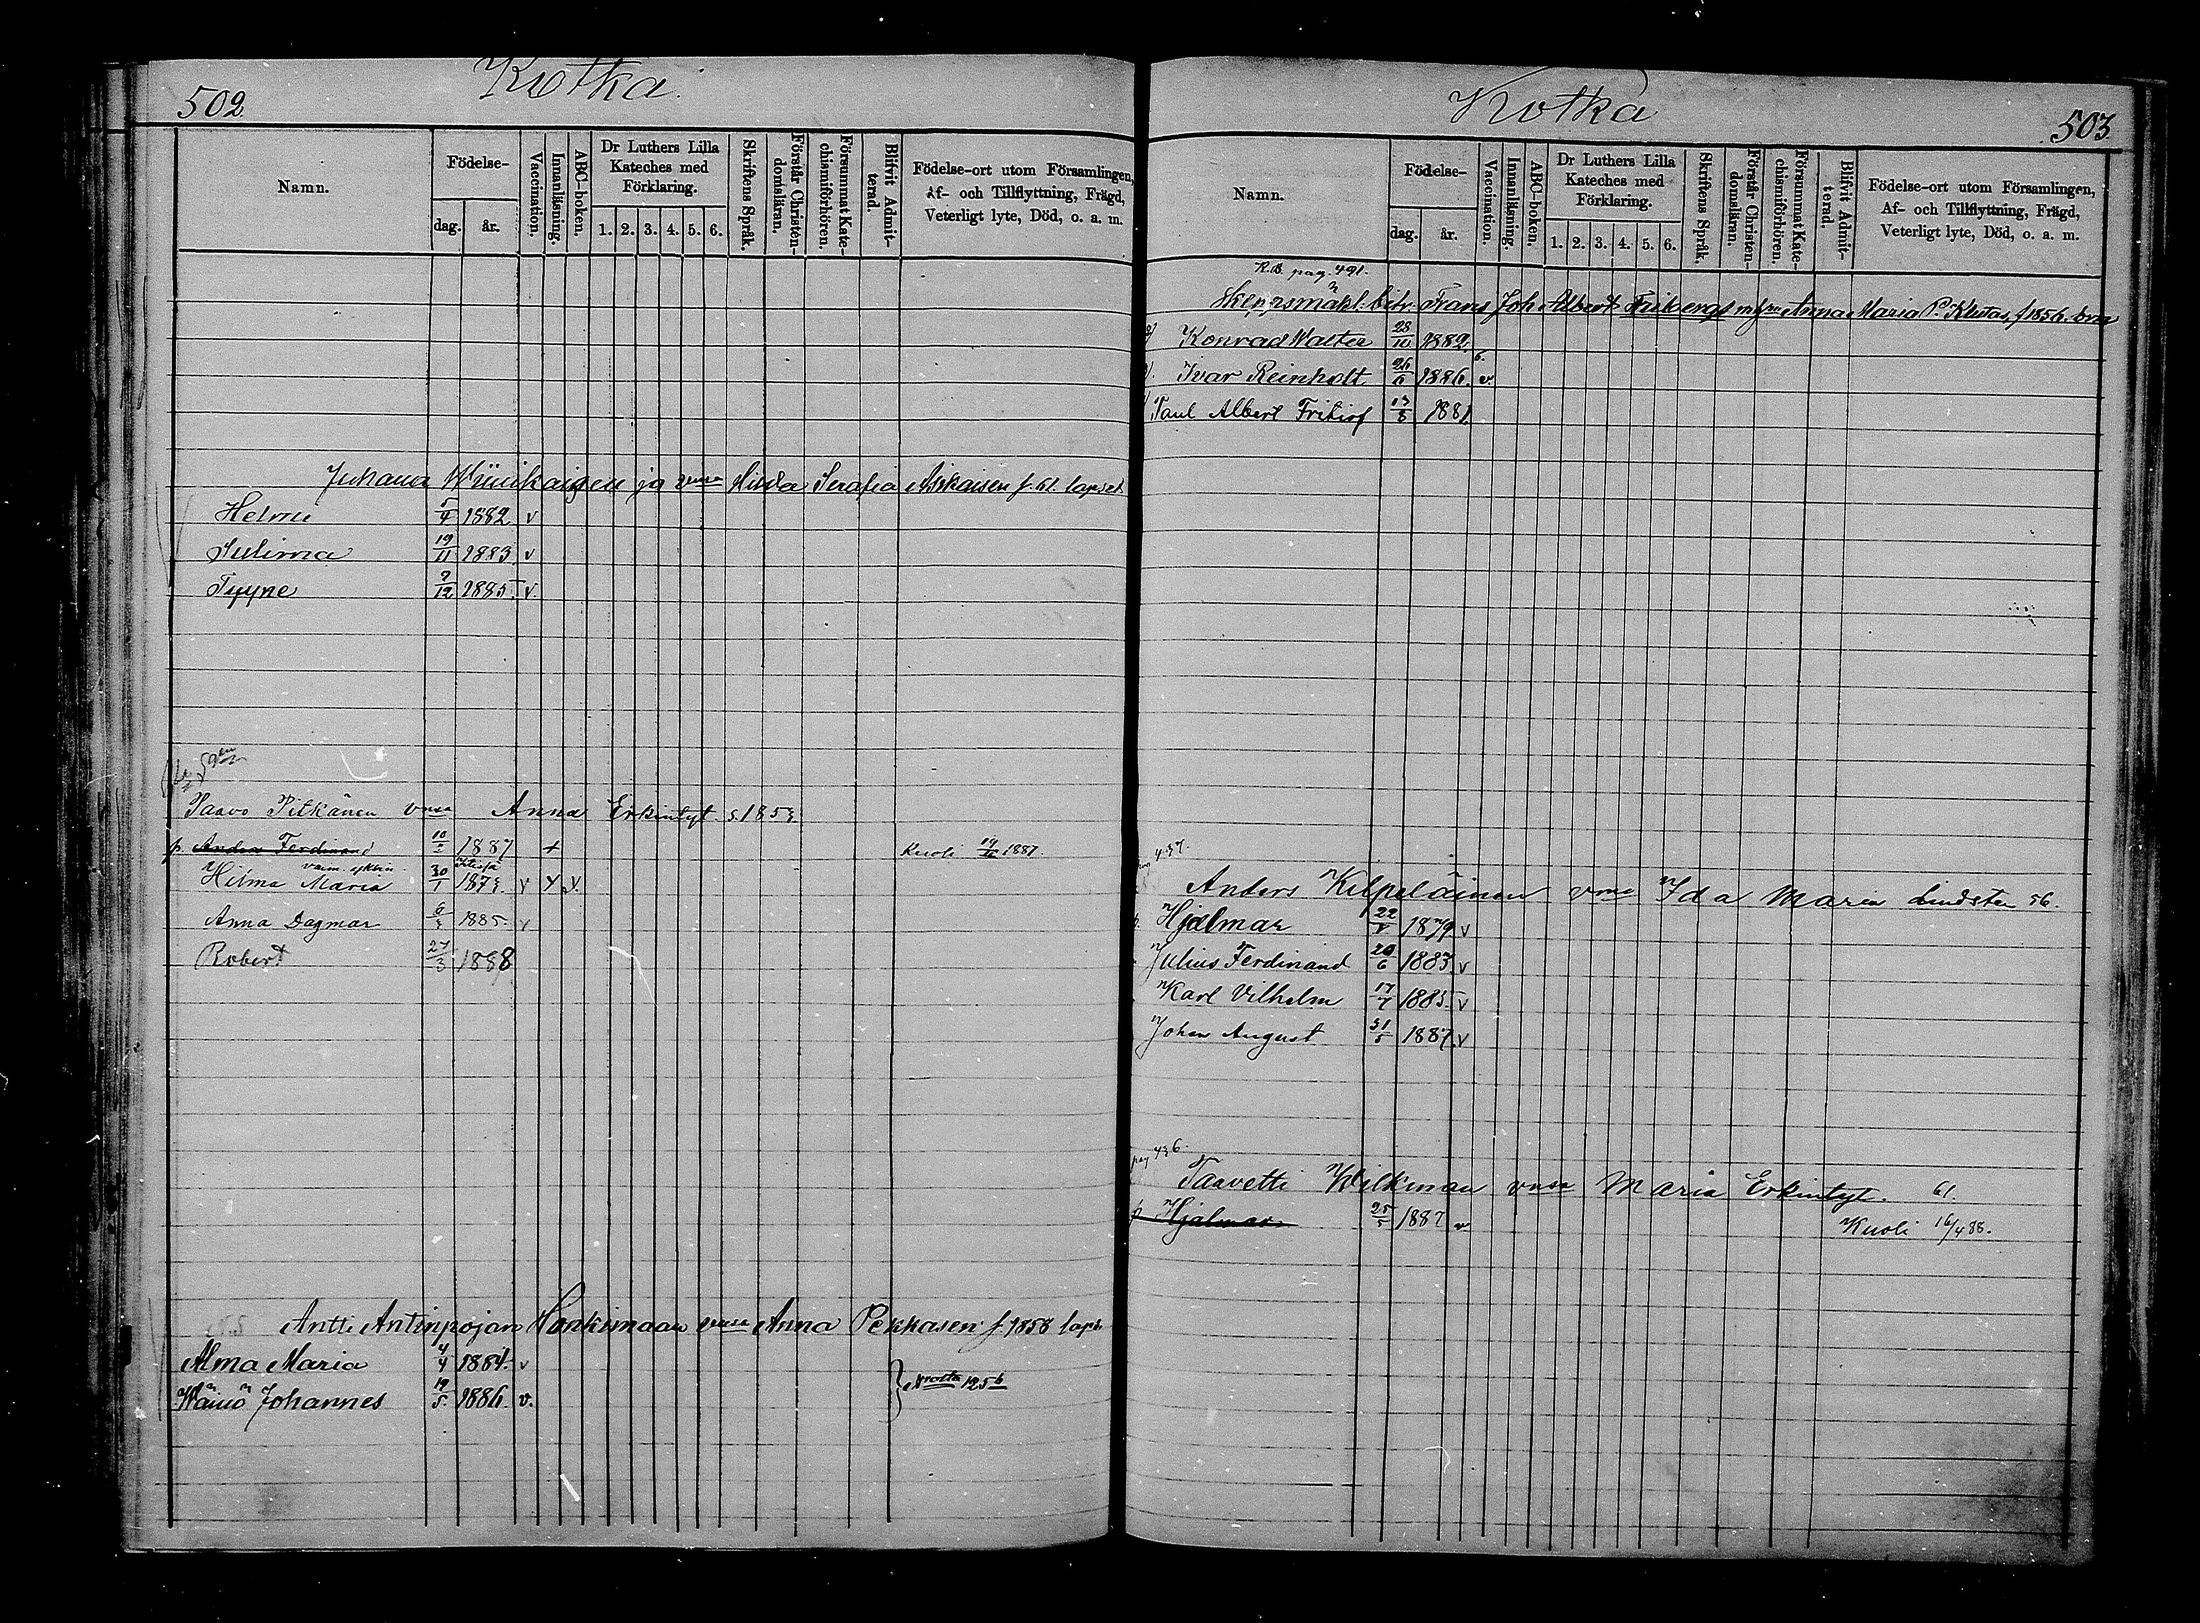 502
Kotka.
Namn.
Födelse-
dag.
år.
Vaccination.
Innanläsning.
ABC-boken.
Dr Luthers Lilla
Kateches med
Förklaring.
1. 2. 3. 4. 5. 6.
Skriftens Språk.
Förstår Christen-
domsläran.
Försummat Kate-
chismiförhören.
Blifvit Admit-
terad.
Födelse-ort utom Församlingen,
Af- och Tillflyttning, Frägd,
Veterligt lyte, Död, o. a. m.
Juhana ja vmsa Hilda Serafia f. 61. lapset
Helmi 5/4 1882 v
19/11 1883 v
Tyyne 7/12 1885. v.
Paavo Pitkänen vmsa Anna Erkintyt s. 1853
p. Ferdinand 10/2 1887 + Kuoli 1887.
Hilma Maria 30/1 1873. v v v.
Anna Dagmar 6/3 1885. v
Robert 27/3 1888
Antti Antinpojan Honkimaan vmsa Anna Pekkasen f. 1858 laps.
Alma Maria 4/4 1884. v
Wäinö Johannes 19/5. 1886. v.
Kotka
503
Namn.
Födelse-
dag.
år.
Vaccination.
Innanläsning.
ABC-boken.
Dr Luthers Lilla
Kateches med
Förklaring.
1. 2. 3. 4. 5. 6.
Skriftens Språk.
Förstår Christen-
domsläran.
Försummat Kate-
chismiförhören.
Blifvit Admit-
terad.
Födelse-ort utom Församlingen,
Af- och Tillflyttning, Frägd,
Veterligt lyte, Död, o. a. m.
K.B. pag. 491.
Frans Joh. Albert Fribergs Anna Maria f. 1856. barn
Konrad Walter 28/10 1882.
Ivar Reinholt 26/6 1886. v.
Paul Albert Fritiof 13/8 1881
pag 437.
Anders Kilpeläinen vmo Ida Maria Lindsten 56.
p. Hjalmar 22/ 1879 v
Julius Ferdinand 20/6 1883 v
Karl Vilhelm 17/7 1885. v
Johan August 31/5 1887. v
pag 436.
Taavetti Wilkman vmsa Maria Erkintyt. 61.
p Hjalmar 25/5 1887 v Kuoli 16/4 88.